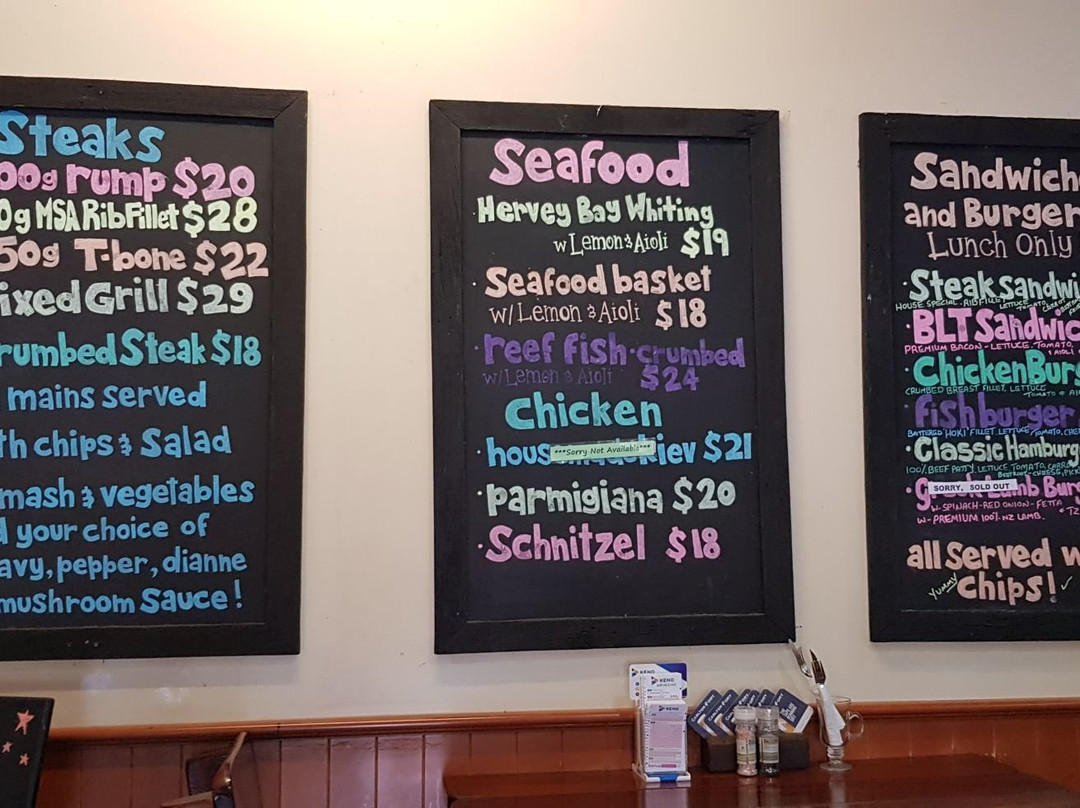 Steaks
00g rump $20
0g MSA Rib Fillet $28
50g T-bone $22
ixed Grill $29
rumbed Steak $18
mains served
th chips & Salad
mash & vegetables
d your choice of
avy, pepper, dianne
mushroom Sauce!
Seafood
Hervey Bay Whiting
w Lemon & Aioli $19
Seafood basket
w/ Lemon & Aioli $18
reef fish crumbed
w/ Lemon & Aioli $24
Chicken
hous kiev $21
***Sorry Not Available***
parmigiana $20
Schnitzel $18
Sandwiche
and Burger
Lunch Only
Steak Sandwi
HOUSE SPECIAL. RIB FILLET LETTUCE TOMATO
BLT Sandwic
PREMIUM BACON - LETTUCE. TOMATO.
Chicken Burg
CRUMBED BREAST FILLET, LETTUCE
TOMATO
fish burger
BATTERED HOKI FILLET LETTUCE TOMATO, CHE
Classic Hamburg
100% BEEF PATTY, LETTUCE TOMATO, CARRO
BEETROOT - CHEESE, PICK
SORRY, SOLD OUT
Lamb Bur
W - SPINACH - RED ONION - FETTA
W - PREMIUM 100% NZ LAMB.
all served w
Yummy chips!
KENO
KENO
KENO